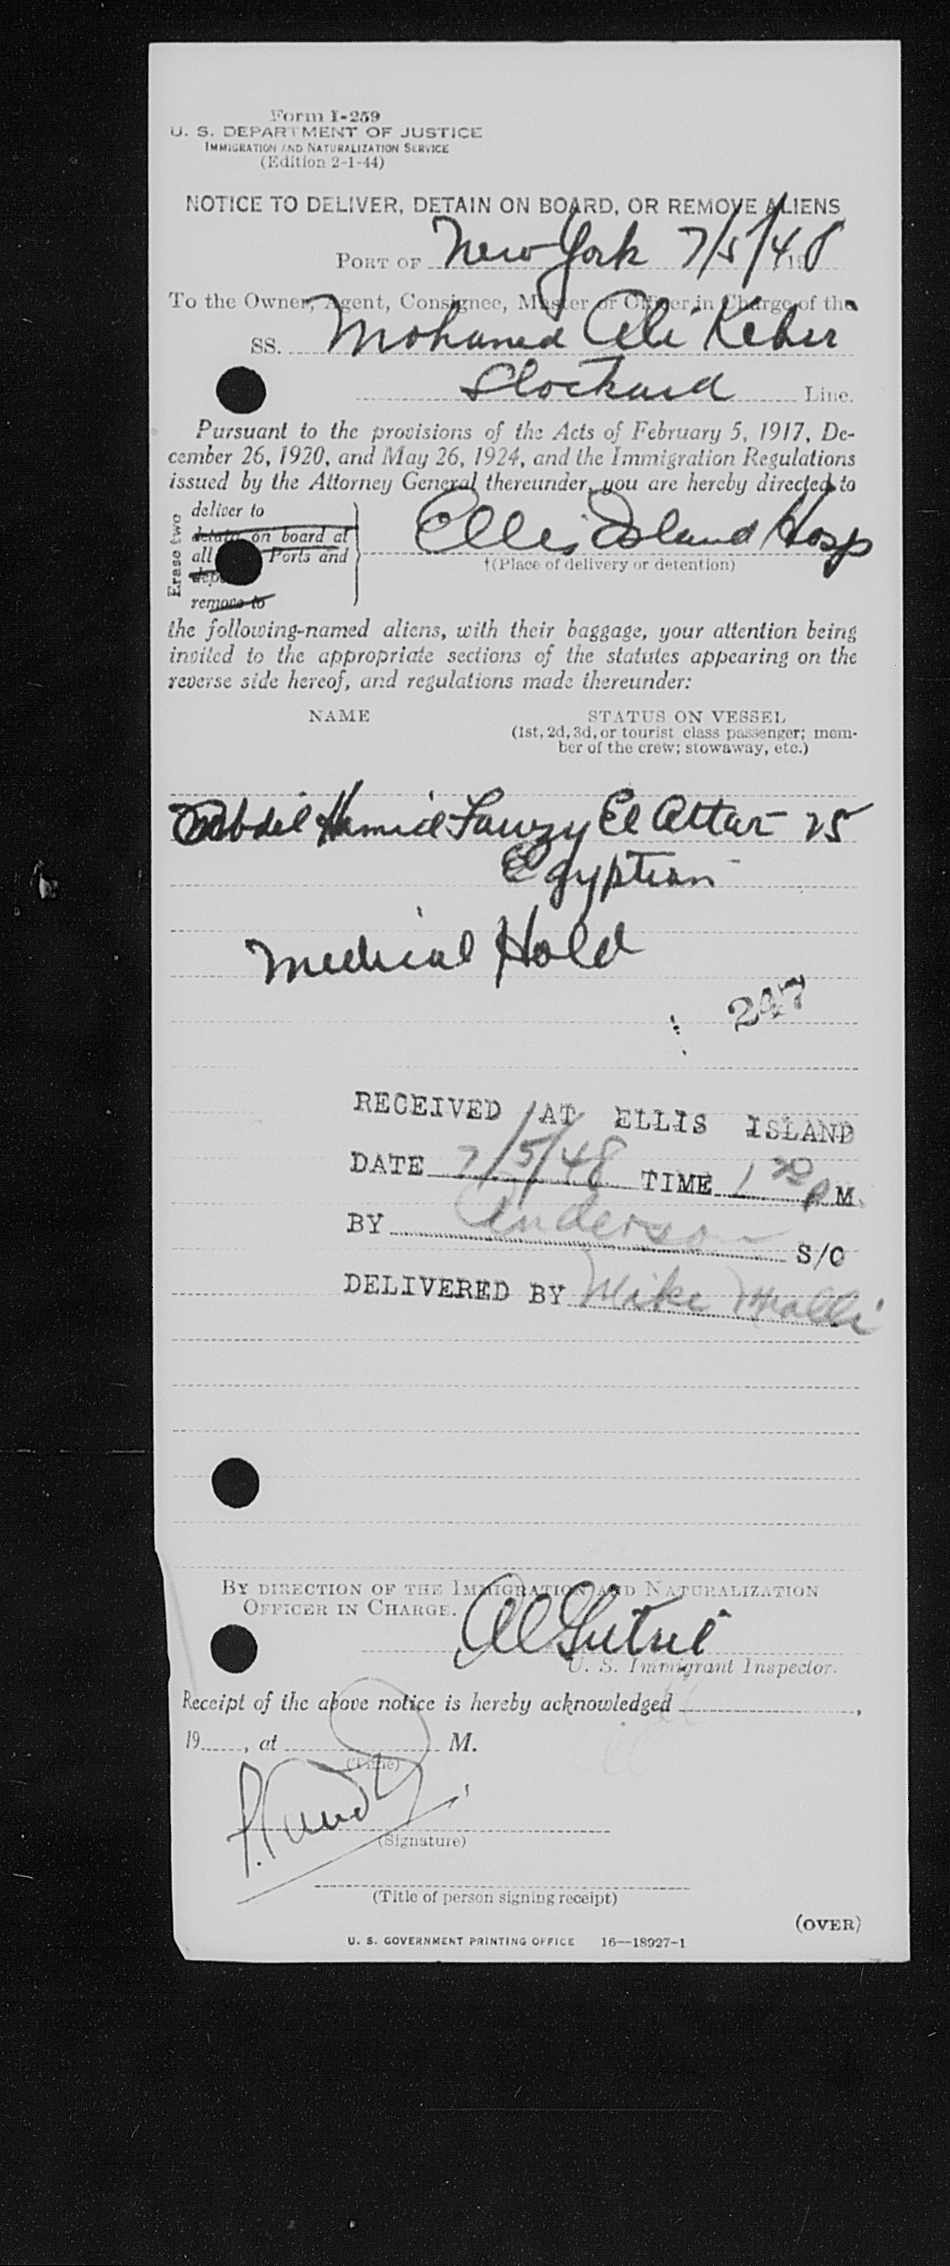 Form I-259
U. S. DEPARTMENT OF JUSTICE
IMMIGRATION AND NATURALIZATION SERVICE
(Edition 2-1-44)
NOTICE TO DELIVER, DETAIN ON BOARD, OR REMOVE ALIENS
PORT OF New York 7/5/48
To the Owner, Agent, Consignee, Master or Officer in Charge of the
SS. Mohamed Ali Kebir
Stockard Line.
Pursuant to the provisions of the Acts of February 5, 1917, De-
cember 26, 1920, and May 26, 1924, and the Immigration Regulations
issued by the Attorney General thereunder, you are hereby directed to
Erase two
deliver to
detain on board at
all Ports and
remove to
Ellis Island Hosp
†(Place of delivery or detention)
the following-named aliens, with their baggage, your attention being
invited to the appropriate sections of the statutes appearing on the
reverse side hereof, and regulations made thereunder:
NAME
STATUS ON VESSEL
(1st, 2d, 3d, or tourist class passenger; mem-
ber of the crew; stowaway, etc.)
Abdel Hamid Fawzy El Attar 25
Egyptian
Medical Hold
247
RECEIVED AT ELLIS ISLAND
DATE 7/5/48 TIME 1 P M.
BY Anderson S/O
DELIVERED BY Mike
BY DIRECTION OF THE IMMIGRATION AND NATURALIZATION
OFFICER IN CHARGE.
U. S. Immigrant Inspector.
Receipt of the above notice is hereby acknowledged ,
19 , at M.
(Time)
(Signature)
(Title of person signing receipt)
(OVER)
U. S. GOVERNMENT PRINTING OFFICE 16—18927-1